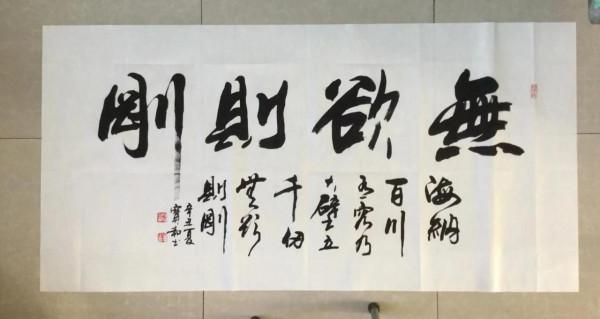 無欲則剛
海納
百川
有容乃
大壁立
千仞
無欲
則剛
辛丑夏